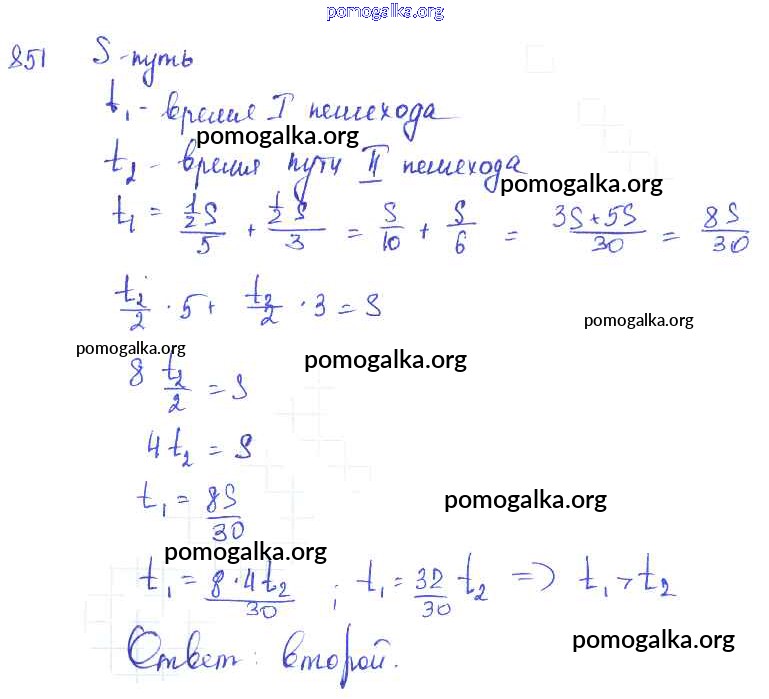 pomogalka.org
851 S-путь
t₁ - время I пешехода
pomogalka.org
t₂ - время пути II пешехода
pomogalka.org
t₁ = (1/2 S)/5 + (1/2 S)/3 = S/10 + S/6 = (3S+5S)/30 = 8S/30
t₂/2 · 5 + t₂/2 · 3 = S
pomogalka.org
pomogalka.org
pomogalka.org
8 t₂/2 = S
4t₂ = S
t₁ = 8S/30
pomogalka.org
pomogalka.org
t₁ = 8·4t₂/30 ; t₁ = 32/30 t₂ => t₁ > t₂
Ответ: второй.
pomogalka.org